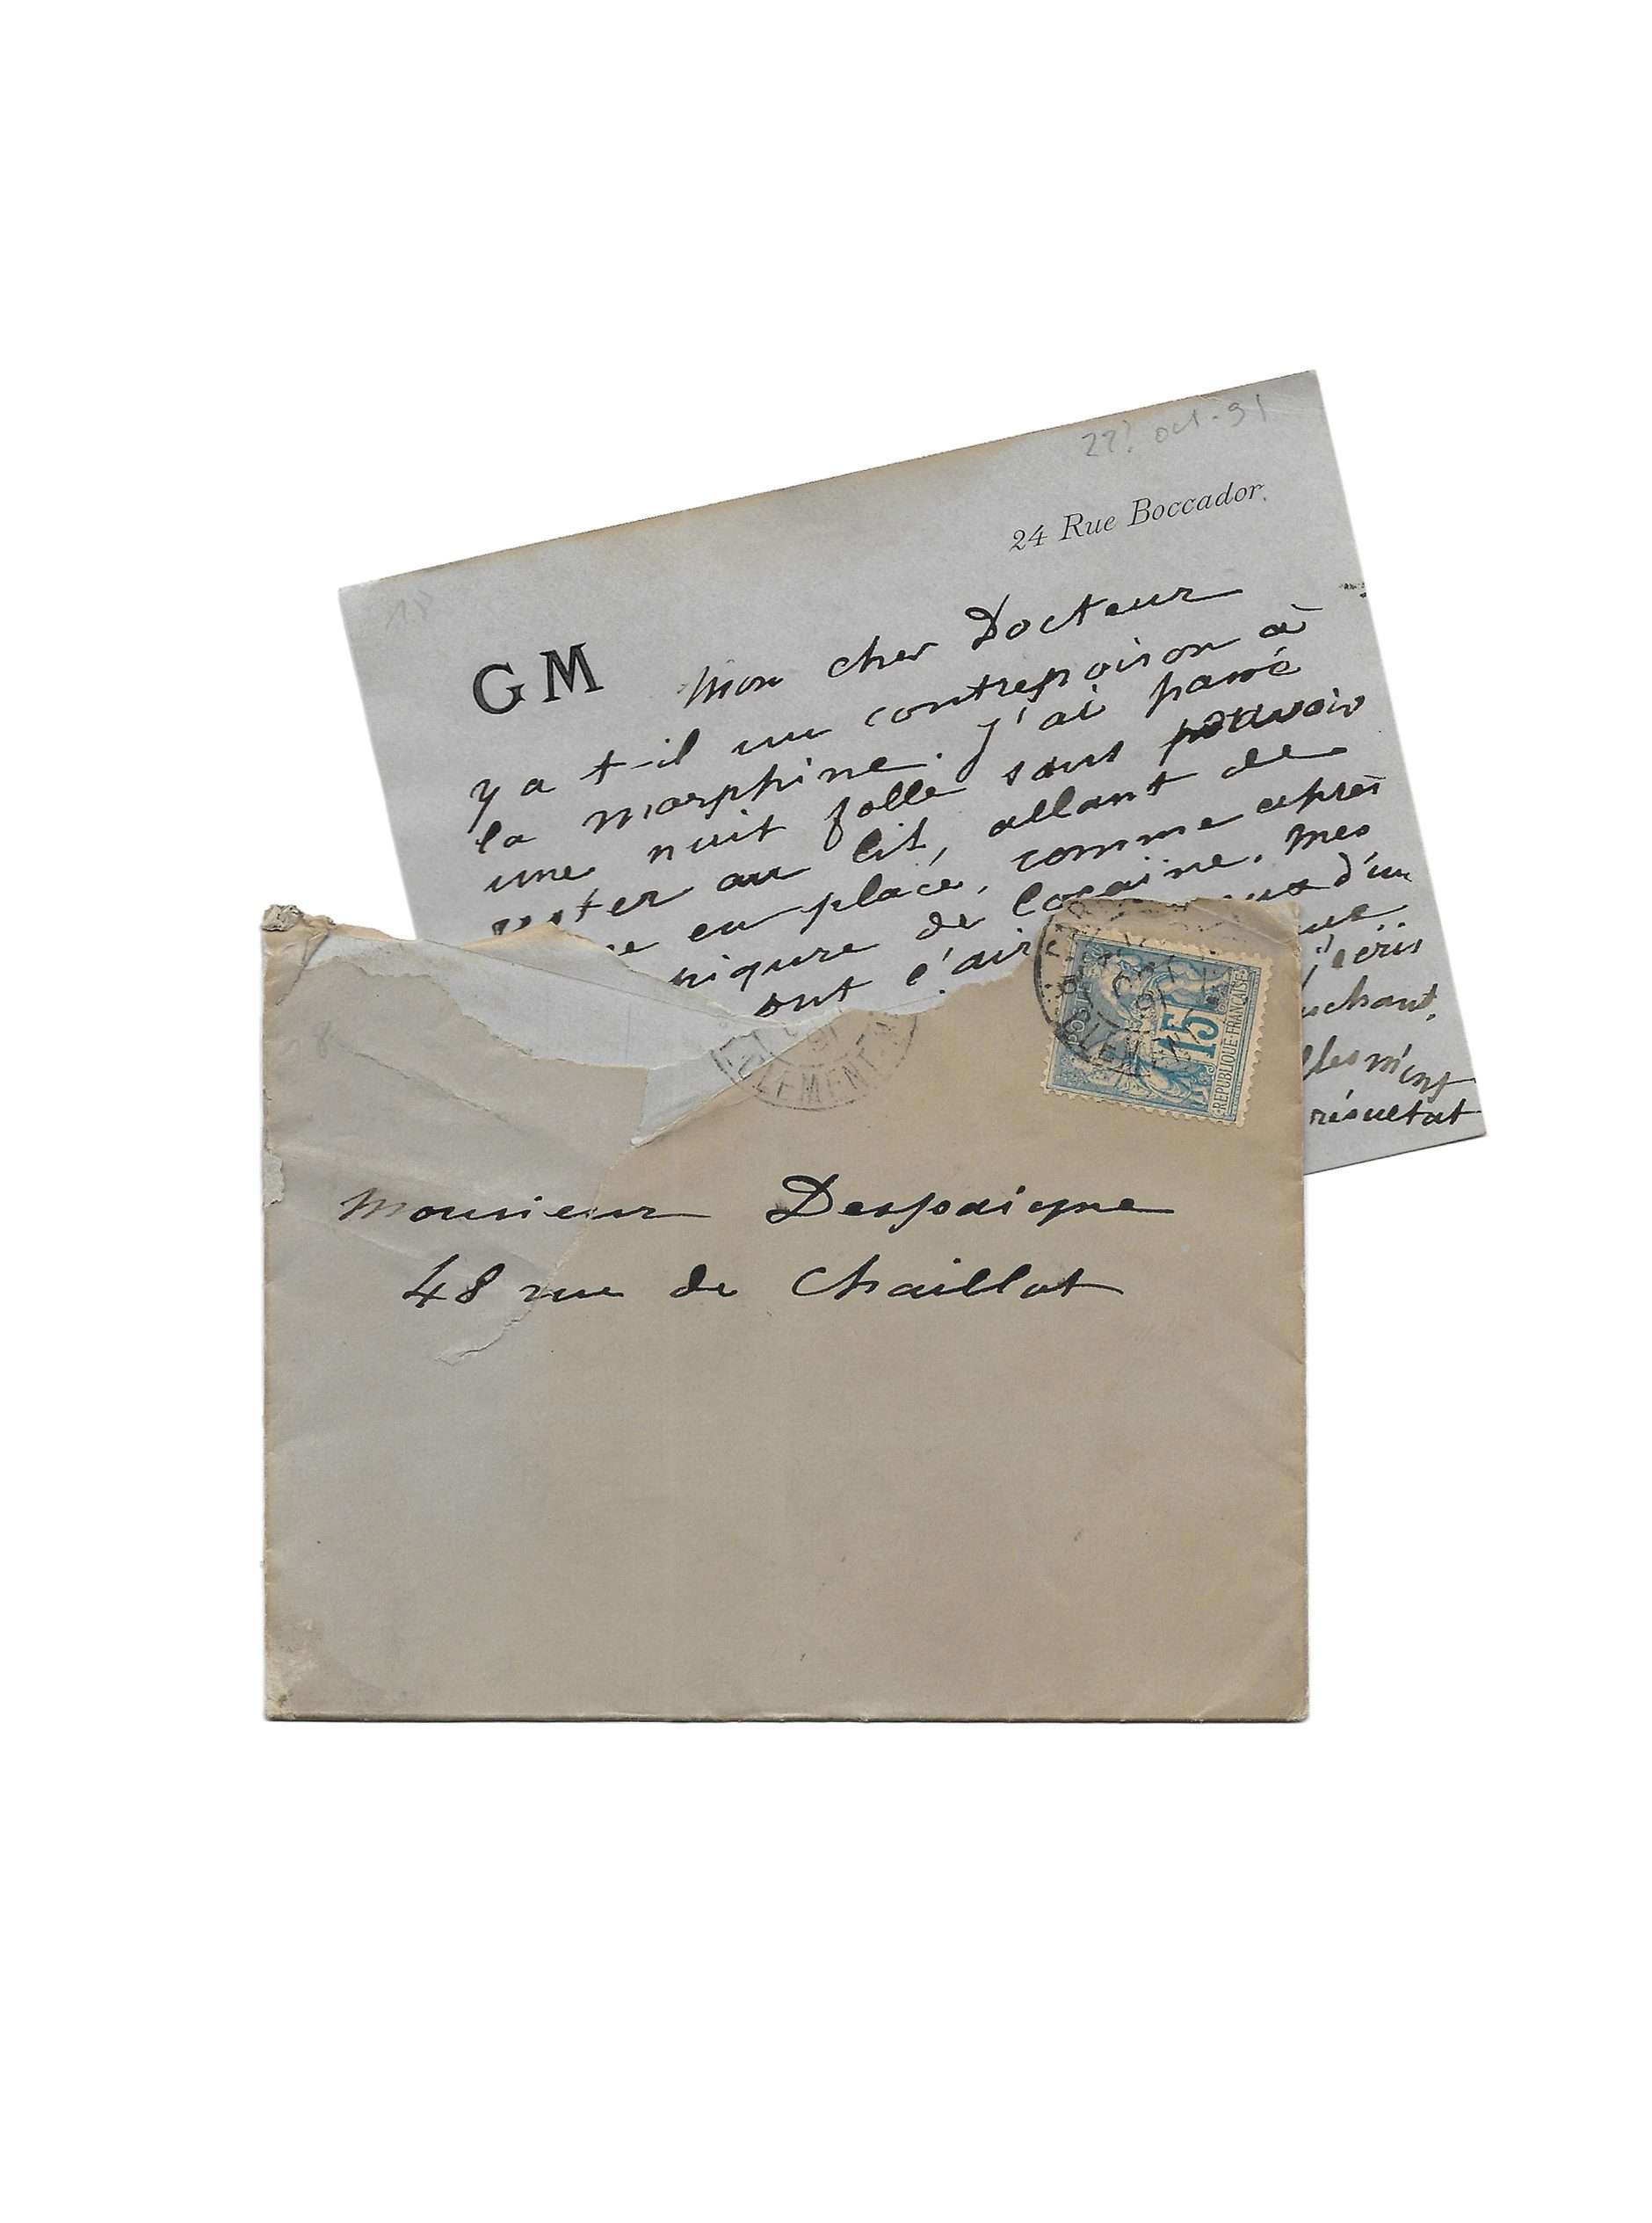 22? oct-91
24 Rue Boccador.
GM
Mon cher Docteur
y a t-il un contrepoison à
la morphine. J'ai passé
une nuit folle sans pouvoir
rester au lit, allant de
en place, comme après
piqure de Cocaïne. Mes
ont l'air d'un
j'écris
m'ont
résultat
15
REPUBLIQUE FRANÇAISE
Monsieur Despaigne
48 rue de Chaillot